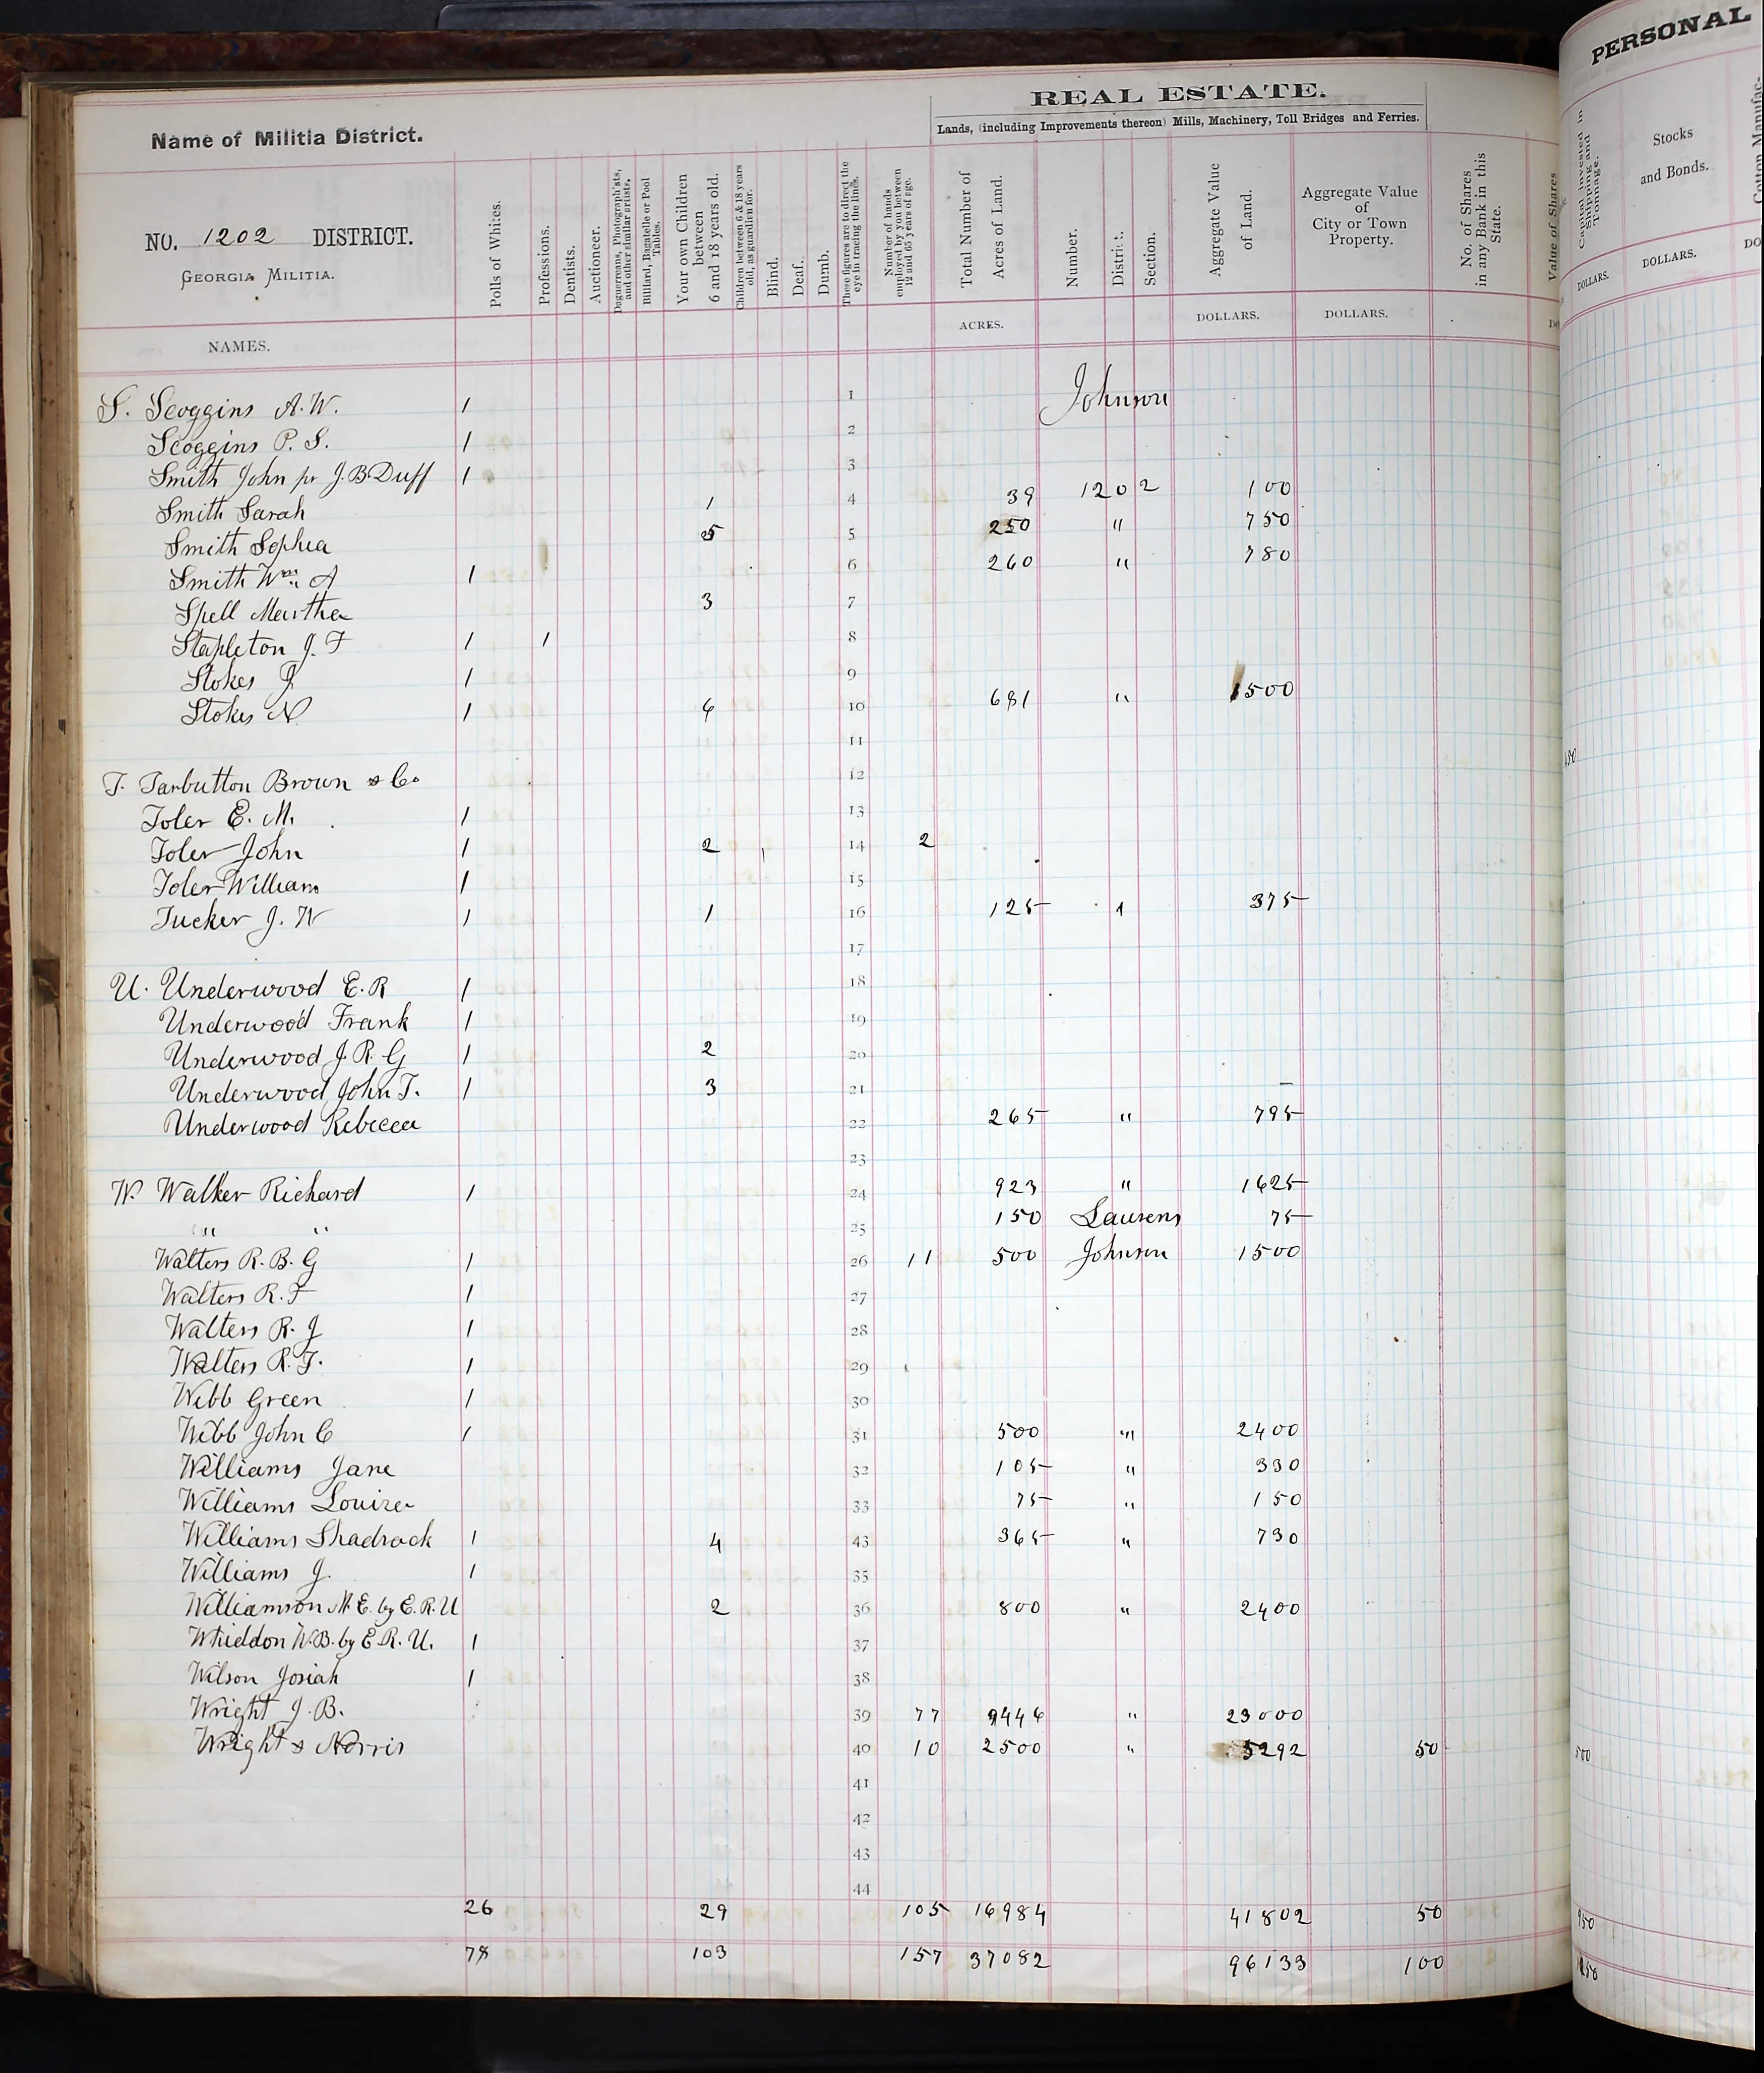 PERSONAL
REAL ESTATE.
Lands, (including Improvements thereon) Mills, Machinery, Toll Bridges and Ferries.
Name of Militia District.
NO. 1202 DISTRICT.
GEORGIA MILITIA.
NAMES.
Polls of Whites.
Professions.
Dentists.
Auctioneer.
Daguerreans, Photographists, and other similar artists.
Billiard, Bagatelle or Pool Tables.
Your own Children between 6 and 18 years old.
Children between 6 & 18 years old, as guardian for.
Blind.
Deaf.
Dumb.
These figures are to direct the eye in tracing the lines.
Number of hands employed by you between 12 and 65 years of age.
Total Number of Acres of Land.
ACRES.
Number.
District.
Section.
Aggregate Value of Land.
DOLLARS.
Aggregate Value of City or Town Property.
DOLLARS.
No. of Shares in any Bank in this State.
Value of Shares
Capital Invested in Shipping and Tonnage.
DOLLARS.
Stocks and Bonds.
DOLLARS.
S. Scoggins A. W. 1 1 Johnson
Scoggins P. S. 1 2
Smith John pr J. B. Duff 1 3
Smith Sarah 1 4 39 1202 100
Smith Sophia 5 5 250 " 750
Smith Wm. A 1 6 260 " 780
Spell Martha 3 7
Stapleton J. F 1 1 8
Stokes J 1 9
Stokes N 1 6 10 681 " 1500
11
T. Tarbutton Brown & Co 12
Toler E. M. 1 13
Toler John 1 2 14 2
Toler William 1 15
Tucker J. W 1 1 16 125 375
17
U. Underwood E. R 1 18
Underwood Frank 1 19
Underwood J. R. G 1 2 20
Underwood John T. 1 3 21
Underwood Rebecca 22 265 " 795
23
W. Walker Richard 1 24 923 " 1625
" " 25 150 Laurens 75
Walters R. B. G 1 26 11 500 Johnson 1500
Walters R. F 1 27
Walters R. J 1 28
Walters R. T. 1 29
Webb Green 1 30
Webb John C 1 31 500 " 2400
Williams Jane 32 105 " 330
Williams Louiza 33 75 " 150
Williams Shadrack 1 4 43 365 " 730
Williams J. 1 35
Williamson M. E. by E. R. U 2 36 800 " 2400
Whiddon W. B. by E. R. U. 1 37
Wilson Josiah 1 38
Wright J. B. 39 77 9446 " 23000
Wright & Norris 40 10 2500 " 5292 50
41
42
43
44
26 29 105 16984 41802 50
78 103 157 37082 96133 100